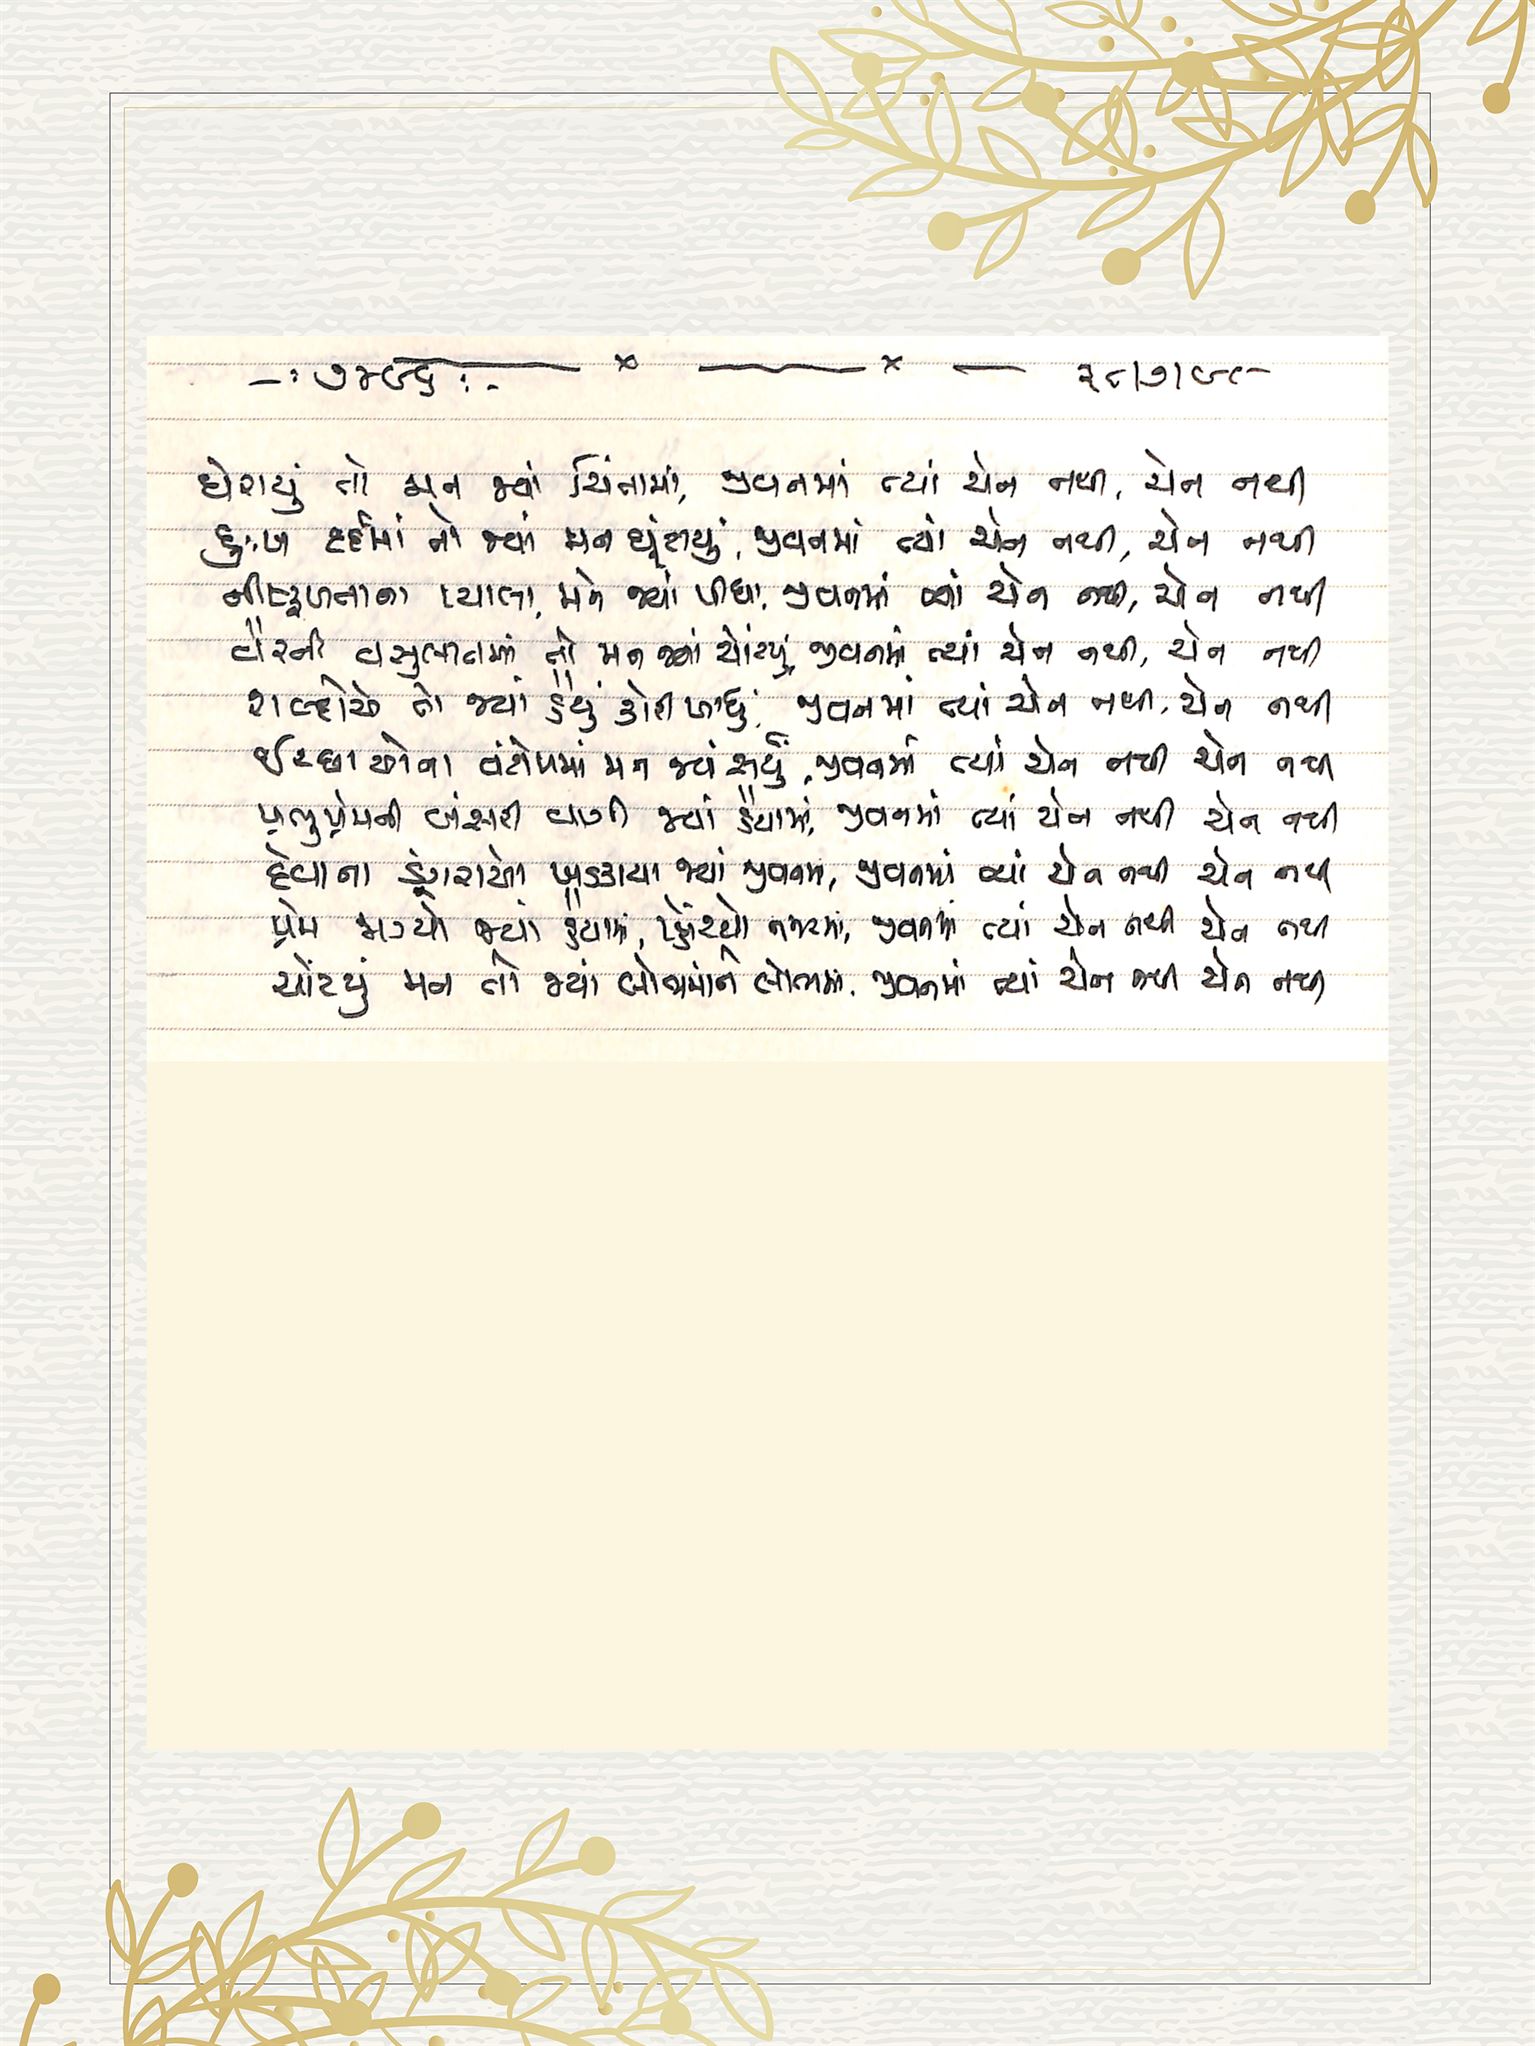 -: ૭૪૯૬ :-
ઘેરાયું તો મન જ્યાં ચિંતામાં, જીવનમાં ત્યાં ચેન નથી, ચેન નથી
દુઃખ દર્દમાં તો જ્યાં મન ઘૂંટાયું, જીવનમાં ત્યાં ચેન નથી, ચેન નથી
પ્યાલા, મને જ્યાં પીધા, જીવનમાં ત્યાં ચેન નથી, ચેન નથી
વૈરની વસુલાતમાં તો મન જ્યાં ચોંટયું, જીવનમાં ત્યાં ચેન નથી, ચેન નથી
શબ્દોએ તો જ્યાં હૈયું કોરી ખાધું, જીવનમાં ત્યાં ચેન નથી, ચેન નથી
ઈર્ષ્યાઓના મન જ્યાં જીવનમાં ત્યાં ચેન નથી ચેન નથી
પ્રભુપ્રેમની બંસરી વાગી જ્યાં હૈયામાં, જીવનમાં ત્યાં ચેન નથી ચેન નથી
દેવાના ડુંગરાઓ ખડકાયા જ્યાં જીવનમાં, જીવનમાં ત્યાં ચેન નથી ચેન નથી
પ્રેમ જાગ્યો જ્યાં હૈયામાં, નજરમાં, જીવનમાં ત્યાં ચેન નથી ચેન નથી
ચોંટયું મન તો જ્યાં લોભમાંને લોભમાં, જીવનમાં ત્યાં ચેન નથી ચેન નથી